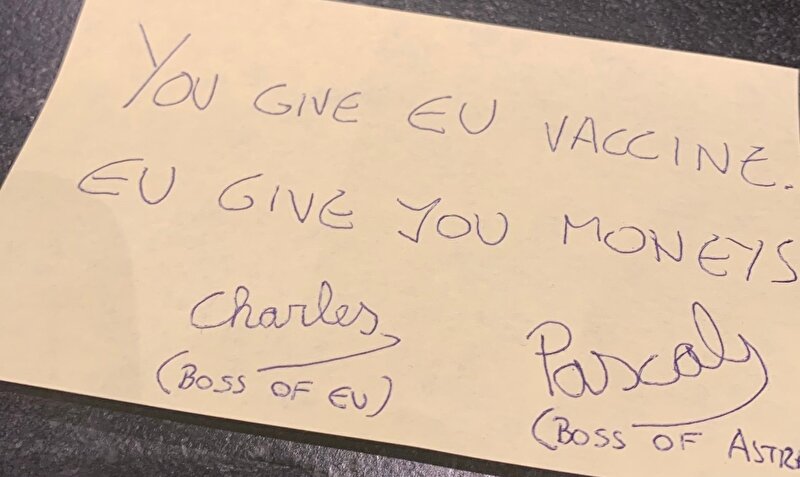 YOU GIVE EU VACCINE.
EU GIVE YOU MONEYS
Charles
(BOSS OF EU)
Pascal
(BOSS OF ASTRA